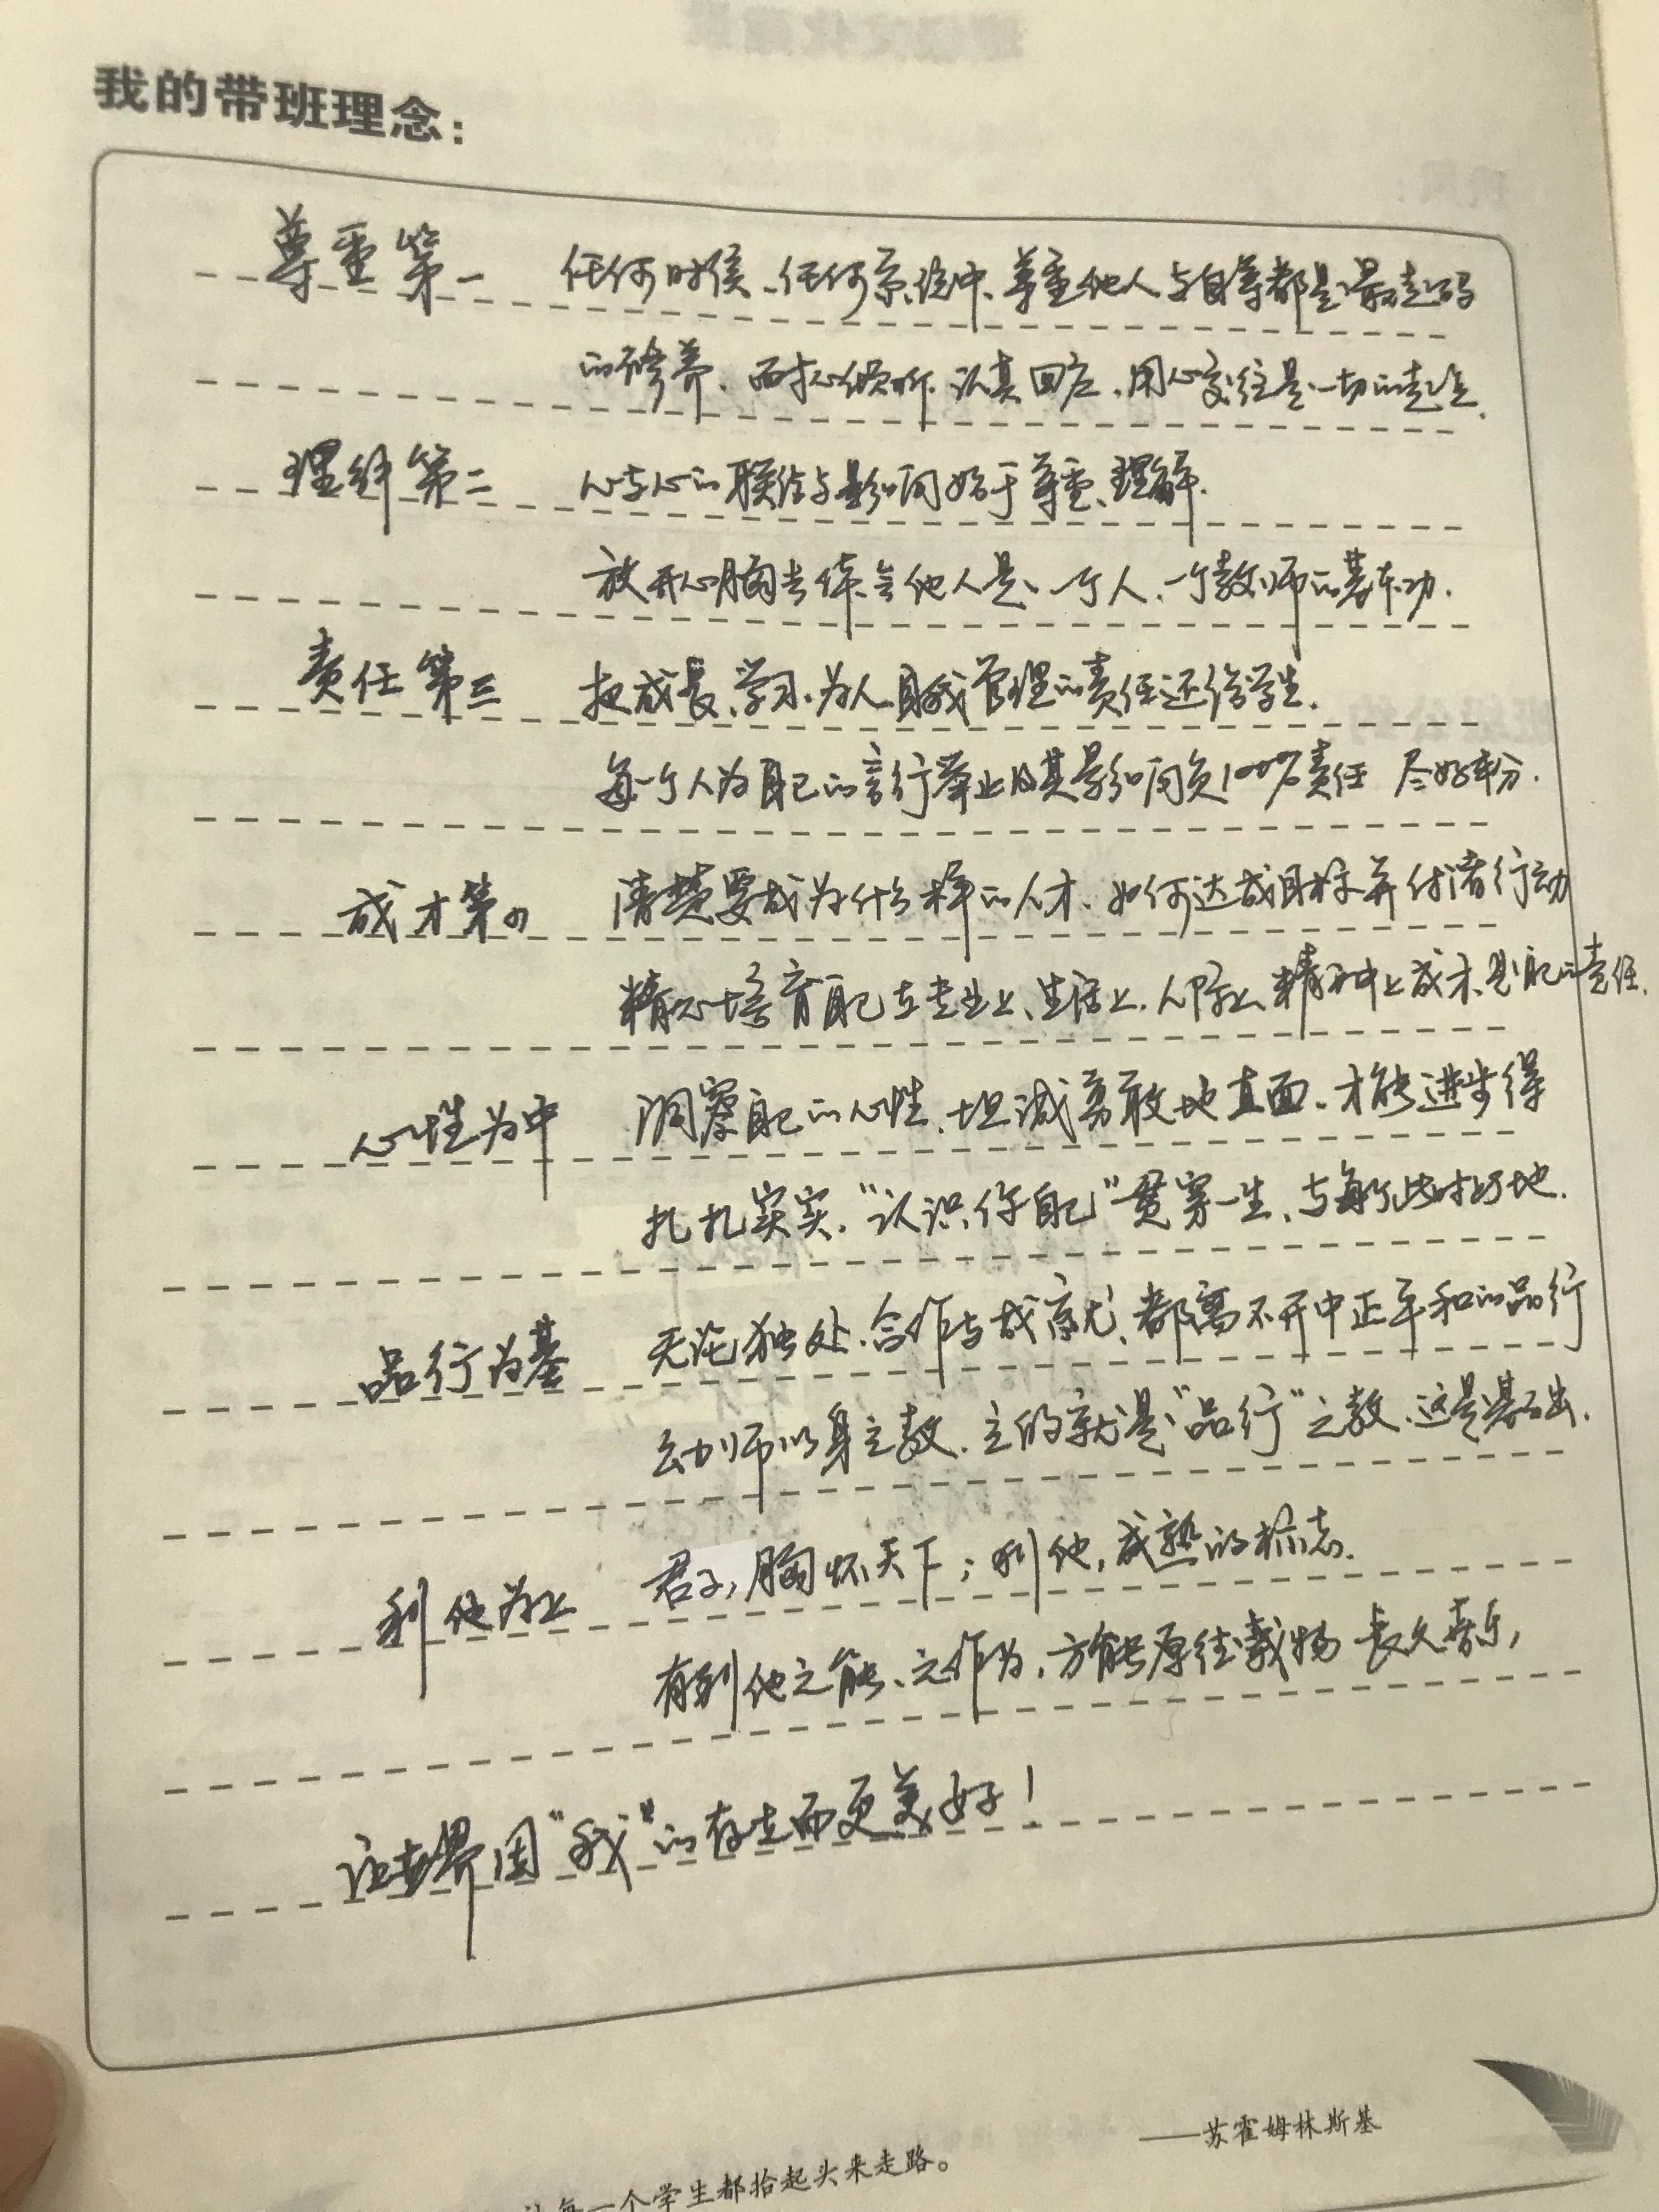 我的带班理念:
尊重第一 任何时候、任何系统中、尊重他人与自尊都是最起码
的修养、耐心倾听、认真回应、用心交往是一切的起点。
理解第二 心与心的联结与影响始于尊重、理解.
放开心胸去体会他人是一个人、一个教师的基本功.
责任第三 把成长、学习、为人、自我管理的责任还给学生.
每一个人为自己的言行举止及其影响负100%责任 尽好本分.
成才第四 清楚要成为什么样的人才、如何达成目标并付诸行动
精心培育自己在专业上、生活上、人际上、精神上成才是自己的责任.
心性为中 洞察自己的心性、坦诚勇敢地直面、才能进步得
扎扎实实."认识你自己"贯穿一生、与每个此时此地.
品行为基 无论独处、合作与成就、都离不开中正平和的品行
幼师以身立教、立的就是"品行"之教、这是基础.
利他为上 君子,胸怀天下;利他,成熟的标志.
有利他之能、之作为,方能厚德载物 长久喜乐,
让世界因"我"的存在而更美好!
——苏霍姆林斯基
让每一个学生都抬起头来走路。